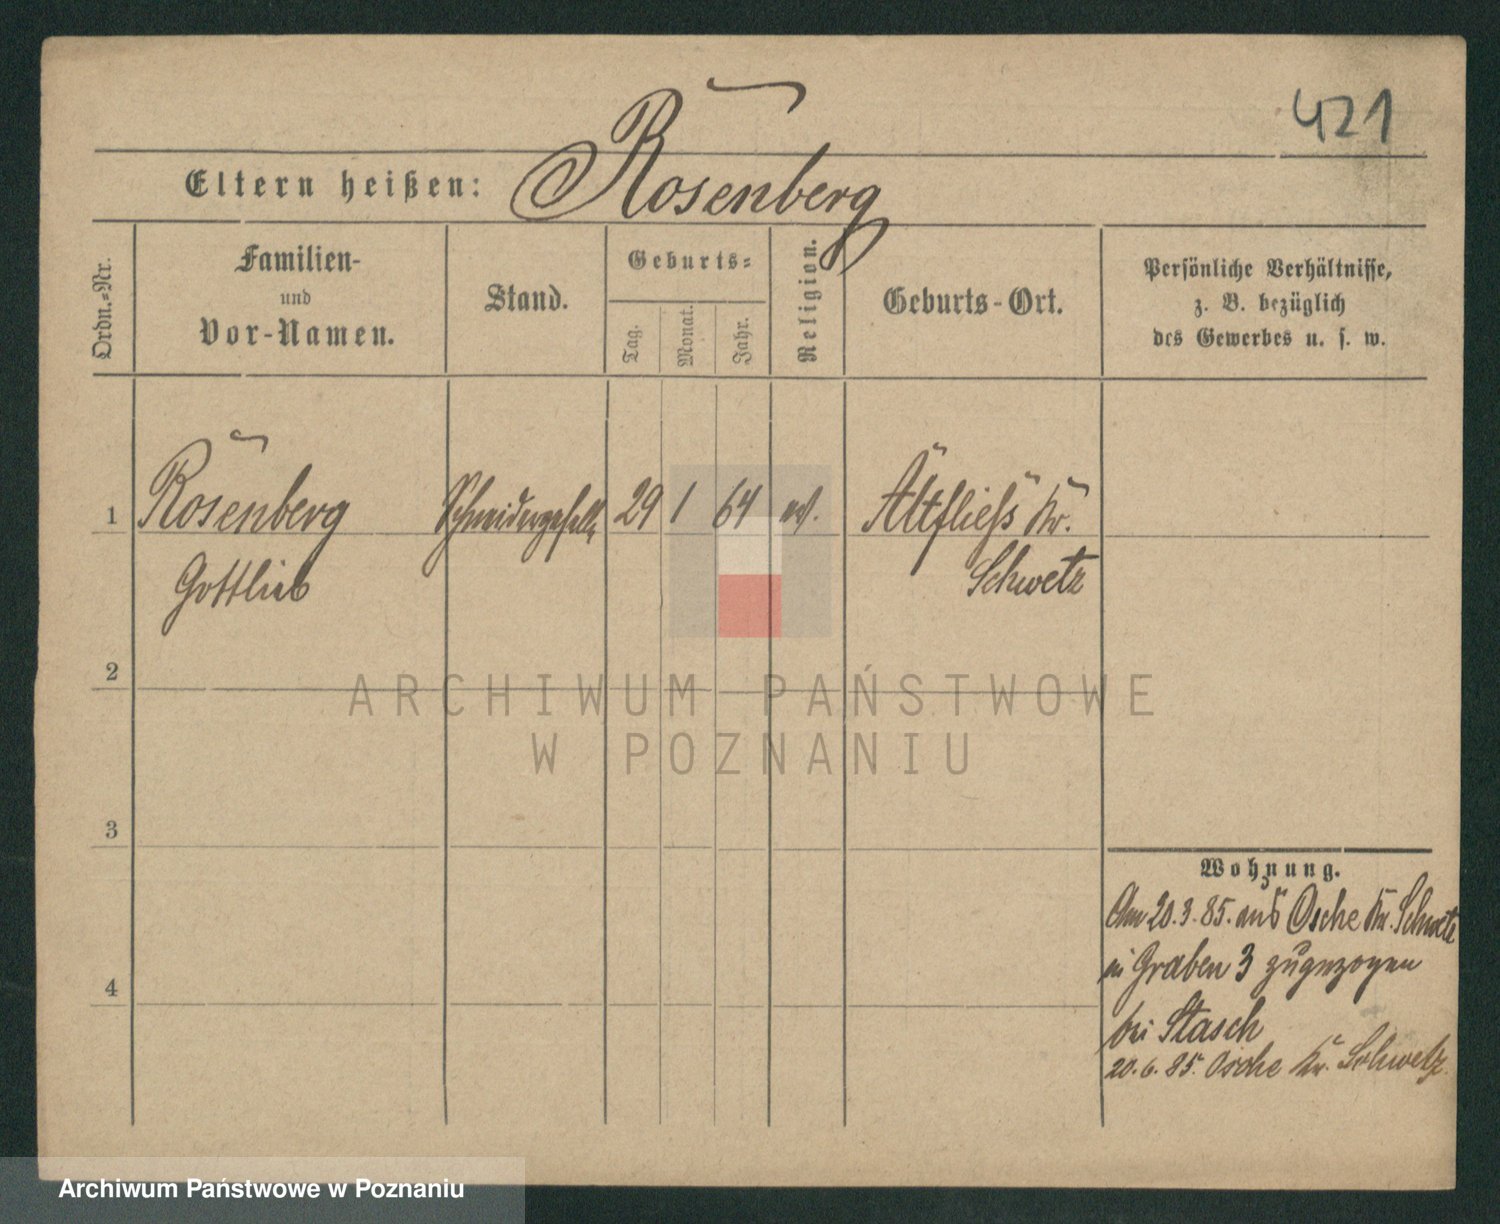 421
Eltern heißen: Rosenberg
Ordn.=Nr.
Familien-
und
Vor-Namen.
Stand.
Geburts=
Tag.
Monat.
Jahr.
Religion.
Geburts-Ort.
Persönliche Verhältnisse,
z. B. bezüglich
des Gewerbes u. s. w.
1 Rosenberg Schneidergeselle 29 1 64 ev. Altfließ Kr.
Gottlieb Schwetz
2
ARCHIWUM PAŃSTWOWE
W POZNANIU
3
Wohnung.
Am 20.3.85. aus Osche Kr. Schwetz
in Graben 3 zugezogen
4
bei Stasch
20.6.85. Osche Kr. Schwetz
Archiwum Państwowe w Poznaniu